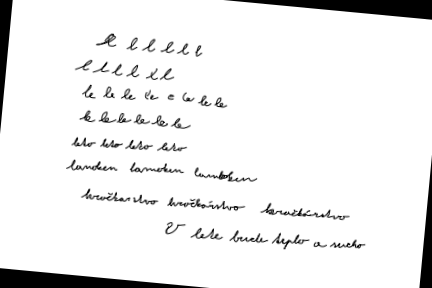 l l l l l l
l l l l l l
le le le le e le le le
le le le le le le
leto leto leto leto
lanoken lamoken lamboken
kročkarstvo kročkárstvo kročkárstvo
V lete bude teplo a sucho